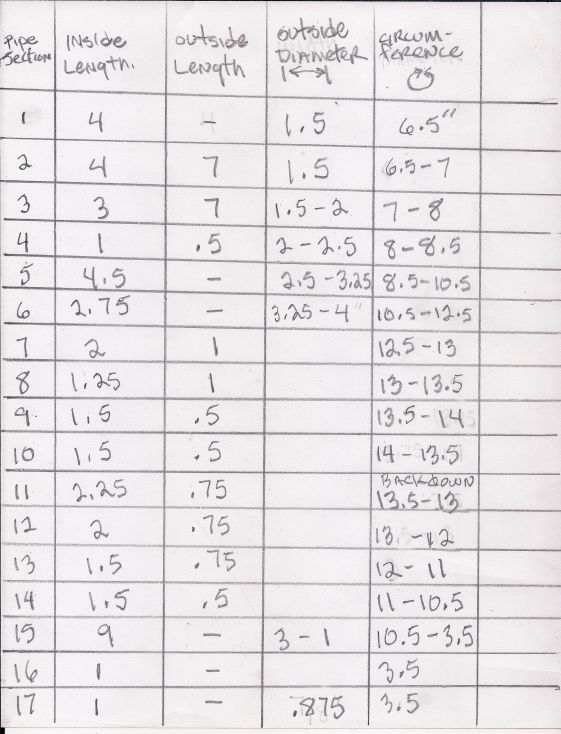 Pipe Section | Inside Length. | Outside Length | Outside Diameter | Circumference
1 | 4 | - | 1.5 | 6.5"
2 | 4 | 7 | 1.5 | 6.5-7
3 | 3 | 7 | 1.5-2 | 7-8
4 | 1 | .5 | 2-2.5 | 8-8.5
5 | 4.5 | - | 2.5-3.25 | 8.5-10.5
6 | 2.75 | - | 3.25-4" | 10.5-12.5
7 | 2 | 1 | | 12.5-13
8 | 1.25 | 1 | | 13-13.5
9. | 1.5 | .5 | | 13.5-14
10 | 1.5 | .5 | | 14-13.5
11 | 2.25 | .75 | | BACK DOWN 13.5-13
12 | 2 | .75 | | 13.-12
13 | 1.5 | .75 | | 12-11
14 | 1.5 | .5 | | 11-10.5
15 | 9 | - | 3-1 | 10.5-3.5
16 | 1 | - | | 3.5
17 | 1 | - | .875 | 3.5